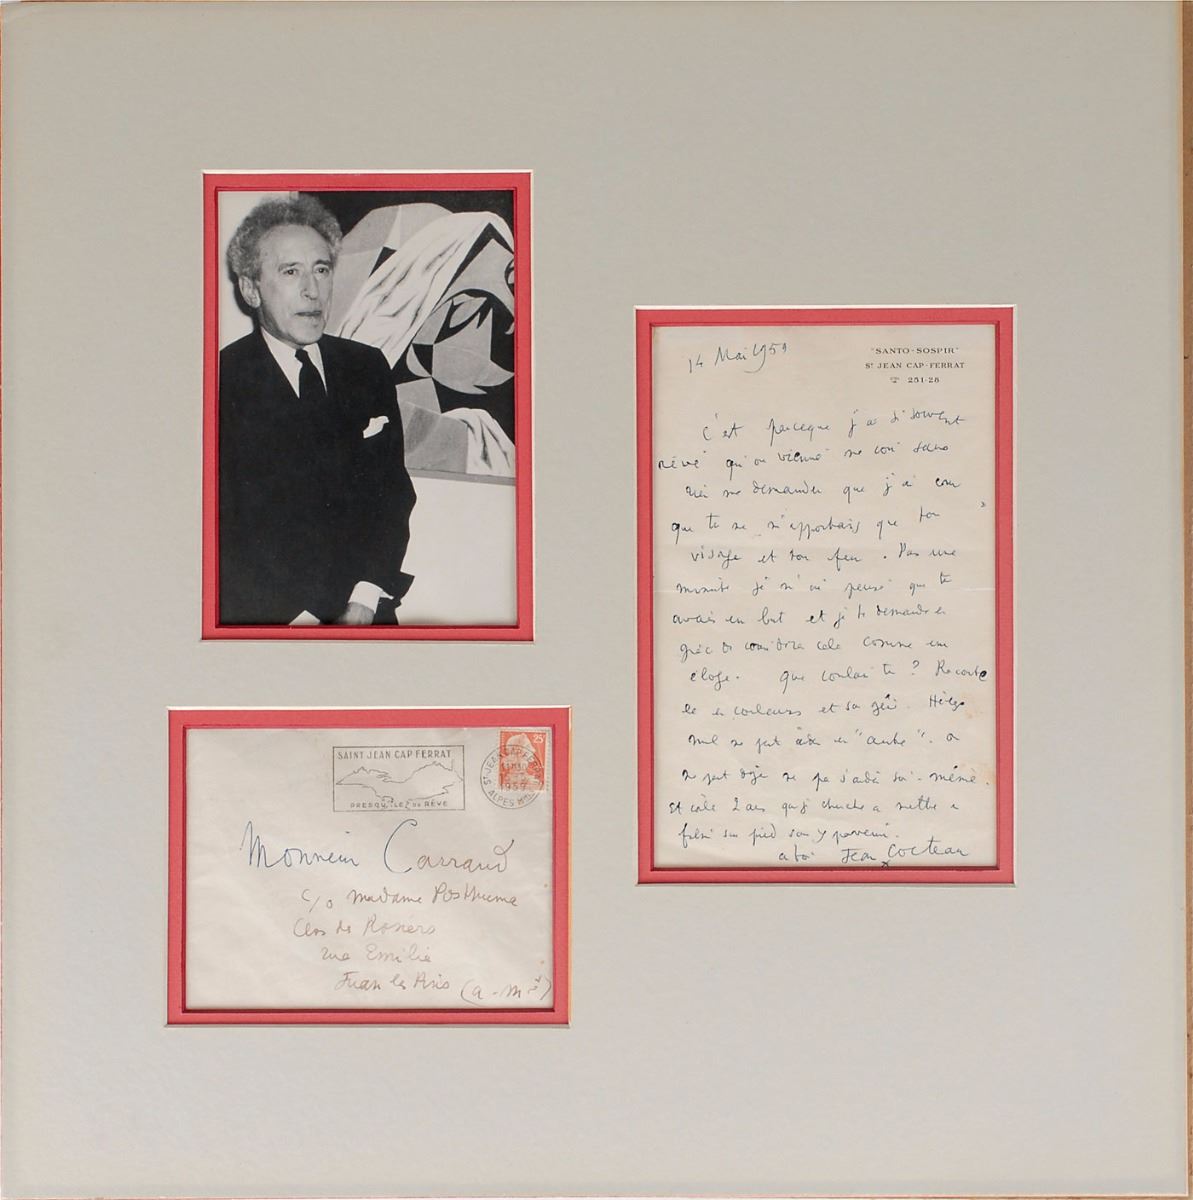 14 Mai 1959
"SANTO-SOSPIR"
St JEAN CAP-FERRAT
251-28
C'est parceque j'ai si souvent
rêvé qu'on vienne me voir sans
rien me demander que j'ai cru
que tu ne m'apportais que ton
visage et ton feu. Pas une
minute je n'ai pensé que tu
avais un but et je te demande en
grâce de considérer cela comme un
éloge. Que voulais tu ? Raconte
le en couleurs et sa
nul ne peut aider un "autre". On
ne peut déjà pas s'aider soi-même.
et cela 2 ans que je cherche a mettre
film sur pied sans y parvenir.
a toi Jean Cocteau
SAINT JEAN CAP FERRAT
PRESQU'ILE DE RÊVE
25F
St JEAN CAP FERRAT
1959
ALPES Mmes
Monsieur Carraud
c/o Madame Posthume
Clos des Rosiers
rue Emilie
Juan les Pins (A-Mmes)